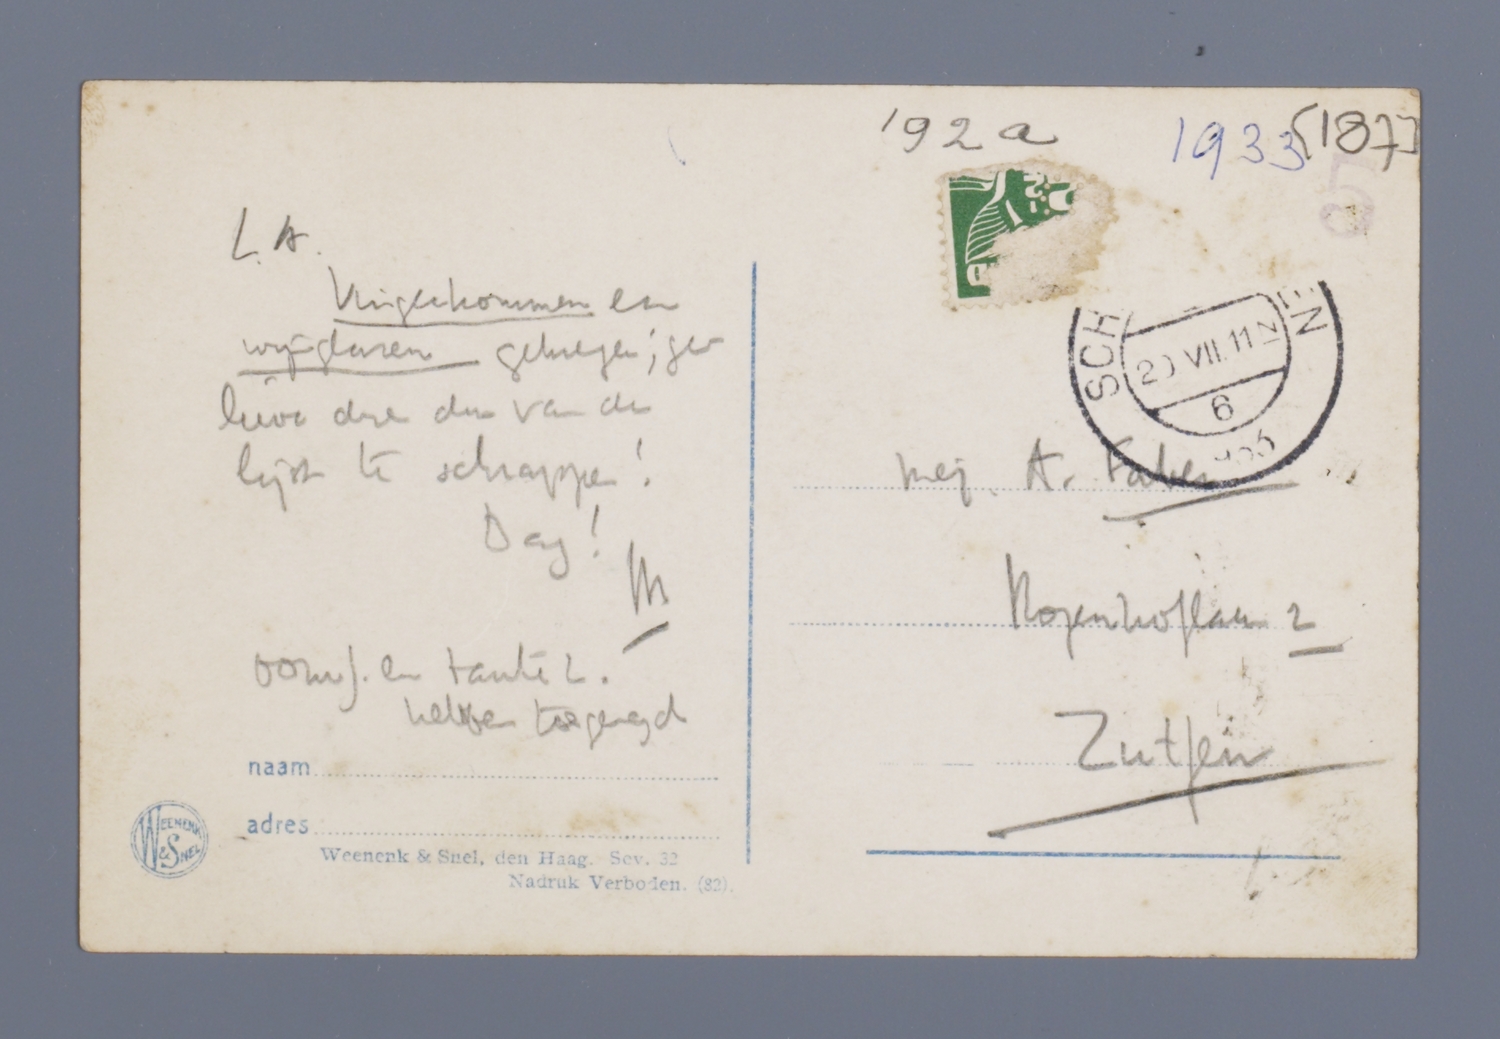 192a
1933 [187]
L. A.
Vingerkommen en
wijnglazen gekregen; ger
lieve deze dus van de
lijst te schrappen!
Day!
M
oom J. en tante L.
hebben toegezegd
naam
adres
WEENENK & SNEL
Weenenk & Snel, den Haag. Sev. 32
Nadruk Verboden. (82).
SCH EN
20 VII. 11 N
6
mej. A. Faber
Rozenhoflaan 2
Zutfen